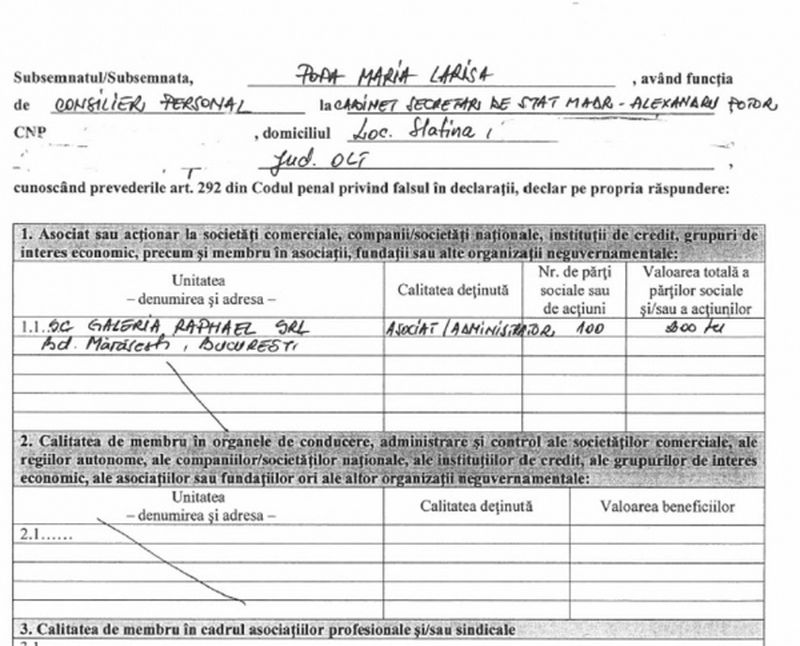 Subsemnatul/Subsemnata, POPA MARIA LARISA , având funcția
de CONSILIER PERSONAL la CABINET SECRETAR DE STAT MADR - ALEXANDRU POTOR,
CNP , domiciliul Loc. Slatina,
Jud. OLT ,
cunoscând prevederile art. 292 din Codul penal privind falsul în declarații, declar pe propria răspundere:
1. Asociat sau acționar la societăți comerciale, companii/societăți naționale, instituții de credit, grupuri de
interes economic, precum și membru în asociații, fundații sau alte organizații neguvernamentale:
Unitatea
– denumirea și adresa –
Calitatea deținută
Nr. de părți
sociale sau
de acțiuni
Valoarea totală a
părților sociale
și/sau a acțiunilor
1.1. SC GALERIA RAPHAEL SRL ASOCIAT/ADMINISTRATOR 100 lei
Bd. Mărășești, BUCUREȘTI
2. Calitatea de membru în organele de conducere, administrare și control ale societăților comerciale, ale
regiilor autonome, ale companiilor/societăților naționale, ale instituțiilor de credit, ale grupurilor de interes
economic, ale asociațiilor sau fundațiilor ori ale altor organizații neguvernamentale:
Unitatea
– denumirea și adresa –
Calitatea deținută
Valoarea beneficiilor
2.1......
3. Calitatea de membru în cadrul asociațiilor profesionale și/sau sindicale